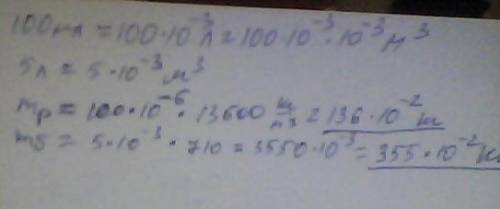 100мл = 100·10⁻³л = 100·10⁻³·10⁻³ м³
5л = 5·10⁻³ м³
mр = 100·10⁻⁶·13600 кг/м³ = 136·10⁻² кг
mб = 5·10⁻³·710 = 3550·10⁻³ = 355·10⁻² кг